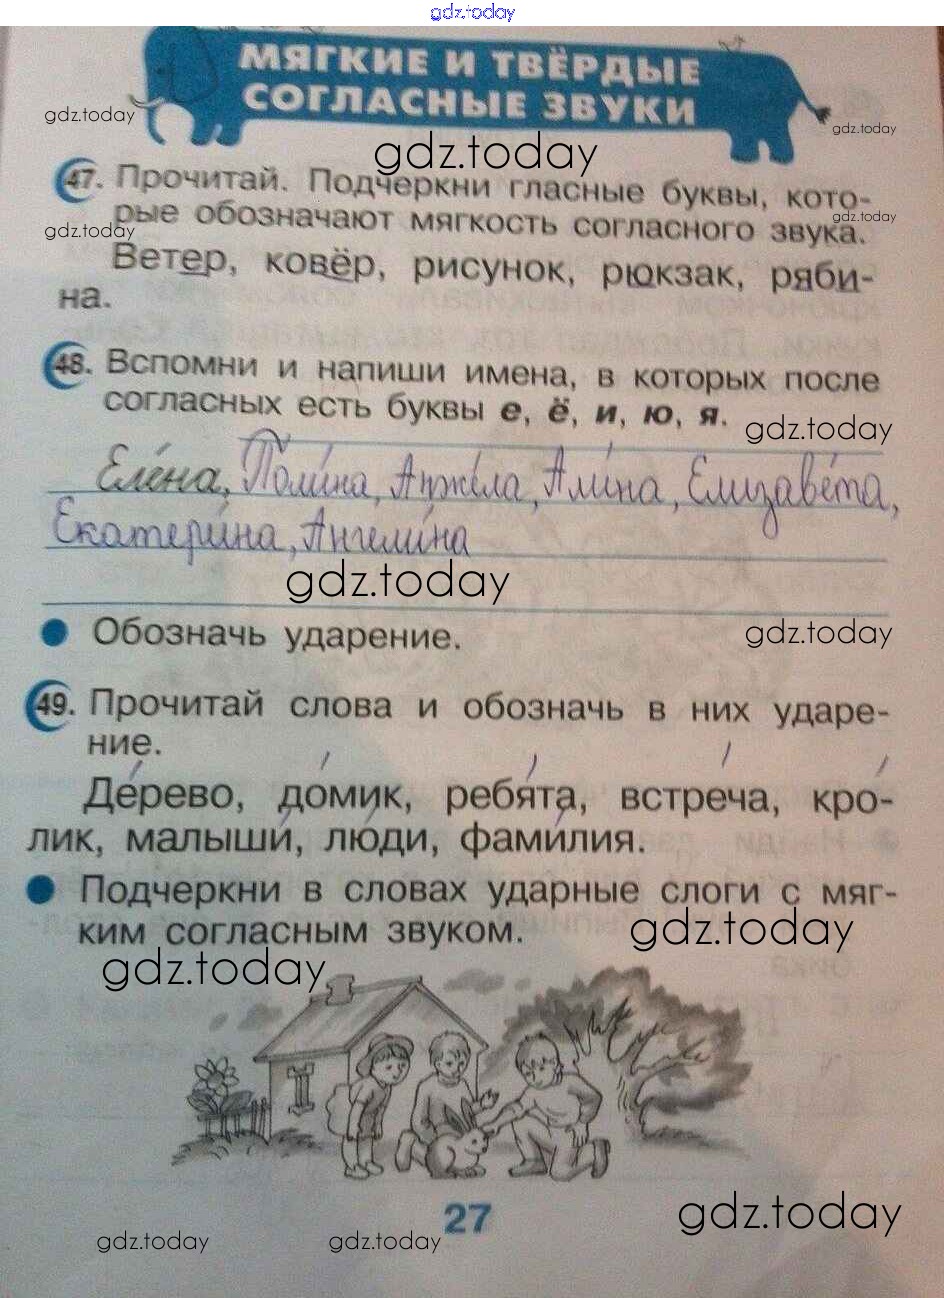 gdz.today
МЯГКИЕ И ТВЁРДЫЕ
СОГЛАСНЫЕ ЗВУКИ
gdz.today
gdz.today
gdz.today
47. Прочитай. Подчеркни гласные буквы, кото-
рые обозначают мягкость согласного звука.
gdz.today
gdz.today
Ветер, ковёр, рисунок, рюкзак, ряби-
на.
48. Вспомни и напиши имена, в которых после
согласных есть буквы е, ё, и, ю, я.
gdz.today
Еле́на, Поли́на, Анже́ла, Али́на, Елизаве́та,
Екатери́на, Ангели́на
gdz.today
Обозначь ударение.
gdz.today
49. Прочитай слова и обозначь в них ударе-
ние.
Де́рево, до́мик, ребя́та, встре́ча, кро́-
лик, малыши́, лю́ди, фами́лия.
Подчеркни в словах ударные слоги с мяг-
ким согласным звуком.
gdz.today
gdz.today
27
gdz.today
gdz.today
gdz.today